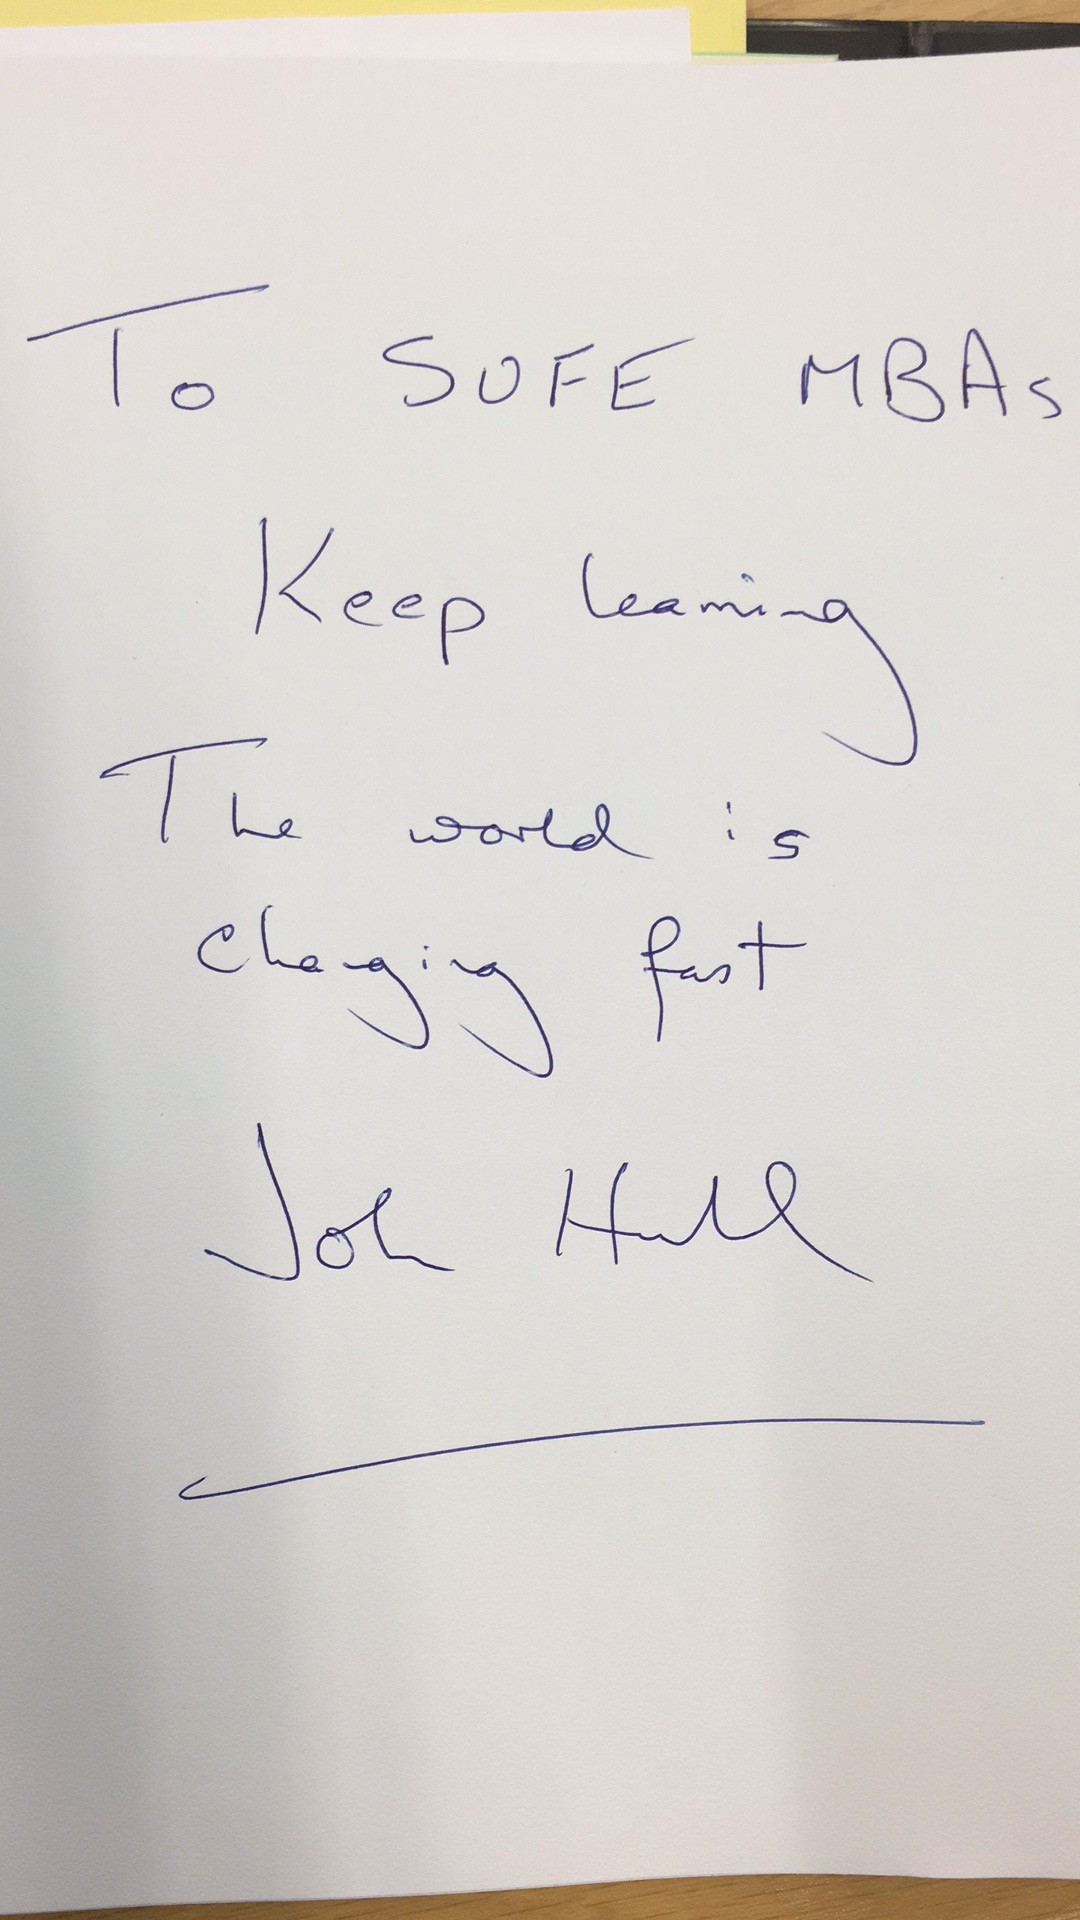 To SUFE MBAs
Keep learning
The world is
changing fast
John Hull